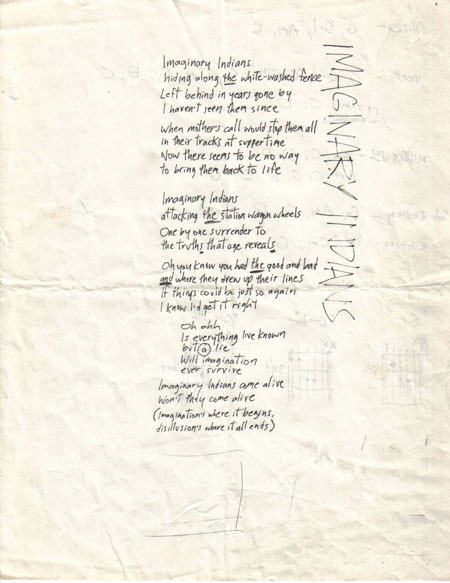 IMAGINARY INDIANS
Imaginary Indians
hiding along the white-washed fence
Left behind in years gone by
I haven't seen them since
When mother's call would stop them all
in their tracks at suppertime
Now there seems to be no way
to bring them back to life
Imaginary Indians
attacking the station wagon wheels
One by one surrender to
the truths that age reveals
Oh you know you had the good and bad
and where they drew up their lines
If things could be just so again
I know I'd get it right
Oh ohh
Is everything I've known
but a lie
Will imagination
ever survive
Imaginary Indians came alive
Won't they come alive
(Imagination's where it begins,
disillusion's where it all ends)